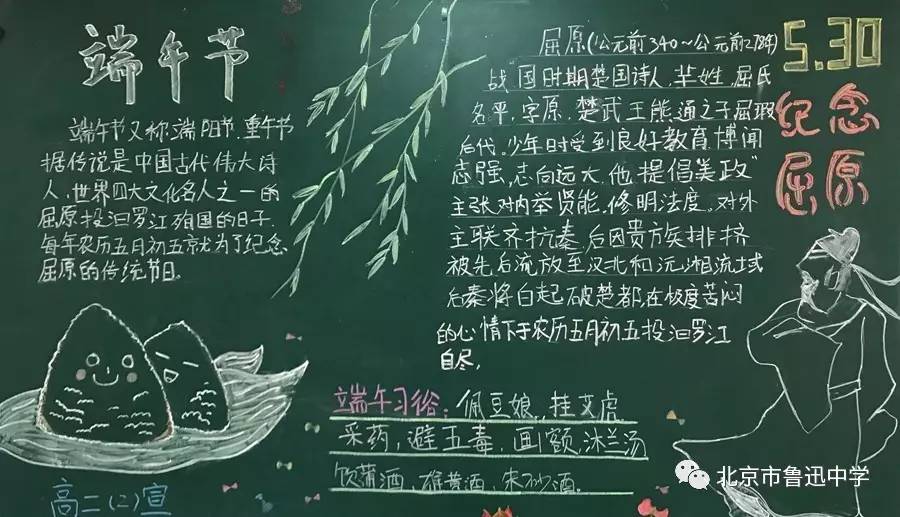 端午节
端午节又称端阳节.重午节
据传说是中国古代伟大诗
人,世界四大文化名人之一的
屈原投汨罗江殉国的日子.
每年农历五月初五就为了纪念
屈原的传统节日.
屈原(公元前340~公元前278年)
战国时期楚国诗人,芈姓,屈氏
名平,字原,楚武王熊通之子屈瑕
后代.少年时受到良好教育,博闻
志强,志向远大,他提倡"美政"
主张对内举贤能,修明法度,对外
主联齐抗秦,后因贵族排挤
被先后流放至汉北和沅湘流域
后秦将白起破楚都,在极度苦闷
的心情下于农历五月初五投汨罗江
自尽.
5.30
纪念
屈原
端午习俗:佩豆娘,挂艾虎
采药,避五毒,画额,沐兰汤
饮蒲酒,雄黄酒,朱砂酒.
高二(二)宣
北京市鲁迅中学